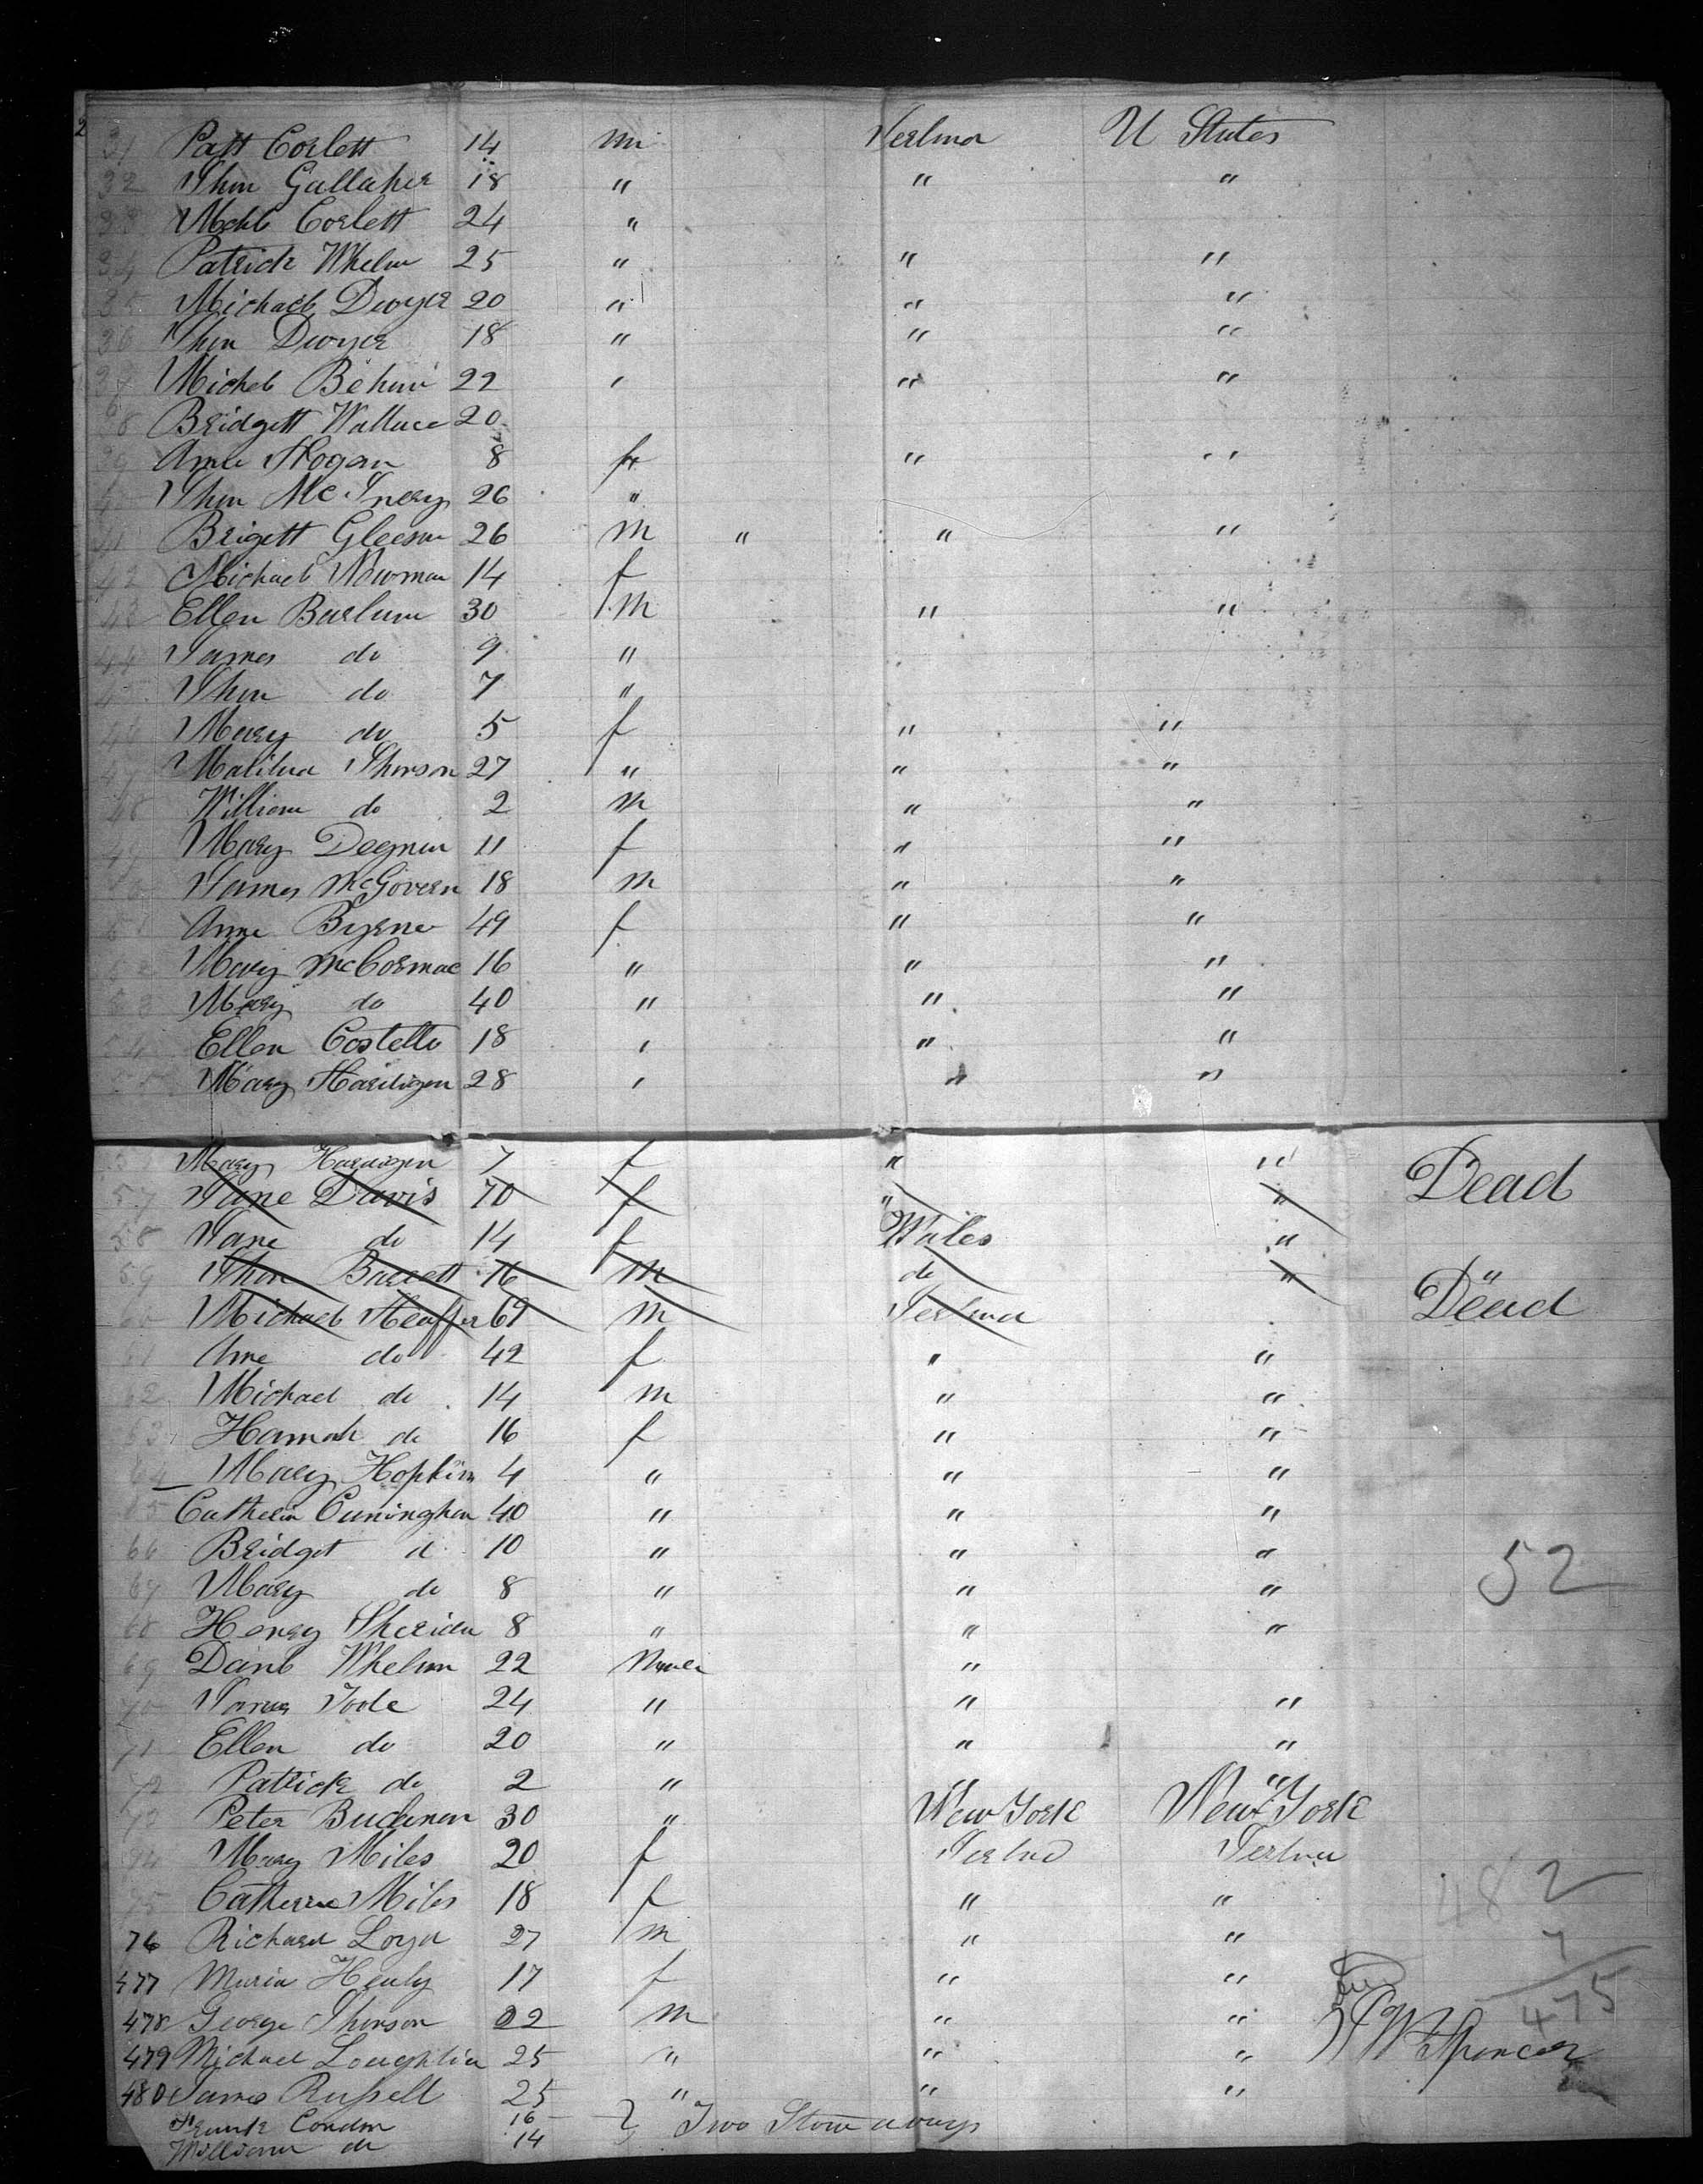 2
31 Patt Corlett 14 m Ierlind U States
32 Jhon Gallaher 18 " " "
33 Mchl Corlett 24 "
34 Patrick Whelin 25 " " "
35 Michael Dwyer 20 " " "
36 Jhon Dwyer 18 " " "
37 Michel 22 " " "
38 Bridgett Wallace 20
39 Anne Hogan 8 f " "
40 Jhon McInery 26 "
41 Brigett Gleeson 26 m " " "
42 Michael Newman 14 f
43 Ellen 30 m " "
44 James do 9 "
45 Jhon do 7 "
46 Mary do 5 f " "
47 Matilda Jhonson 27 " " "
48 William do 2 m " "
49 Mary Deegnin 11 f " "
50 James McGovern 18 m " "
51 Anne Byrne 49 f " "
52 Mary McCormac 16 " " "
53 Mary do 40 " " "
54 Ellen Costello 18 " " "
55 Mary 28 " " "
Mary 7 f " "
57 Jane Davis 70 f " " Dead
58 Jane do 14 f Wales "
59 Jhon Barrett 76 m do " "
60 Michael 69 m Ierlind Dead
61 Anne do 42 f " "
62 Michael do 14 m " "
63 Hannah do 16 f " "
64 Mary Hopkins 4 " " "
65 Catherin Cuningham 40 " " "
66 Bridget d 10 " " " 52
67 Mary do 8 " " "
68 Henry Sheridan 8 " " "
69 Danl Whelan 22 "
70 James Toole 24 " " "
71 Ellen do 20 " " "
72 Patrick do 2 " " "
73 Peter Buckenan 30 " New York New York
74 Mary Miles 20 f Ierlnd Ierlnd
75 Catherine Miles 18 f " " 482
76 Richard Loyd 27 m " " 7
477 Maria Healy 17 f " "
478 George Jhonson 22 m " " 475
479 Michael Loughlin 25 " " " Spencer
480 James Russell 25 " " "
Frank Condon 16 } " Two Stowaways
William do 14